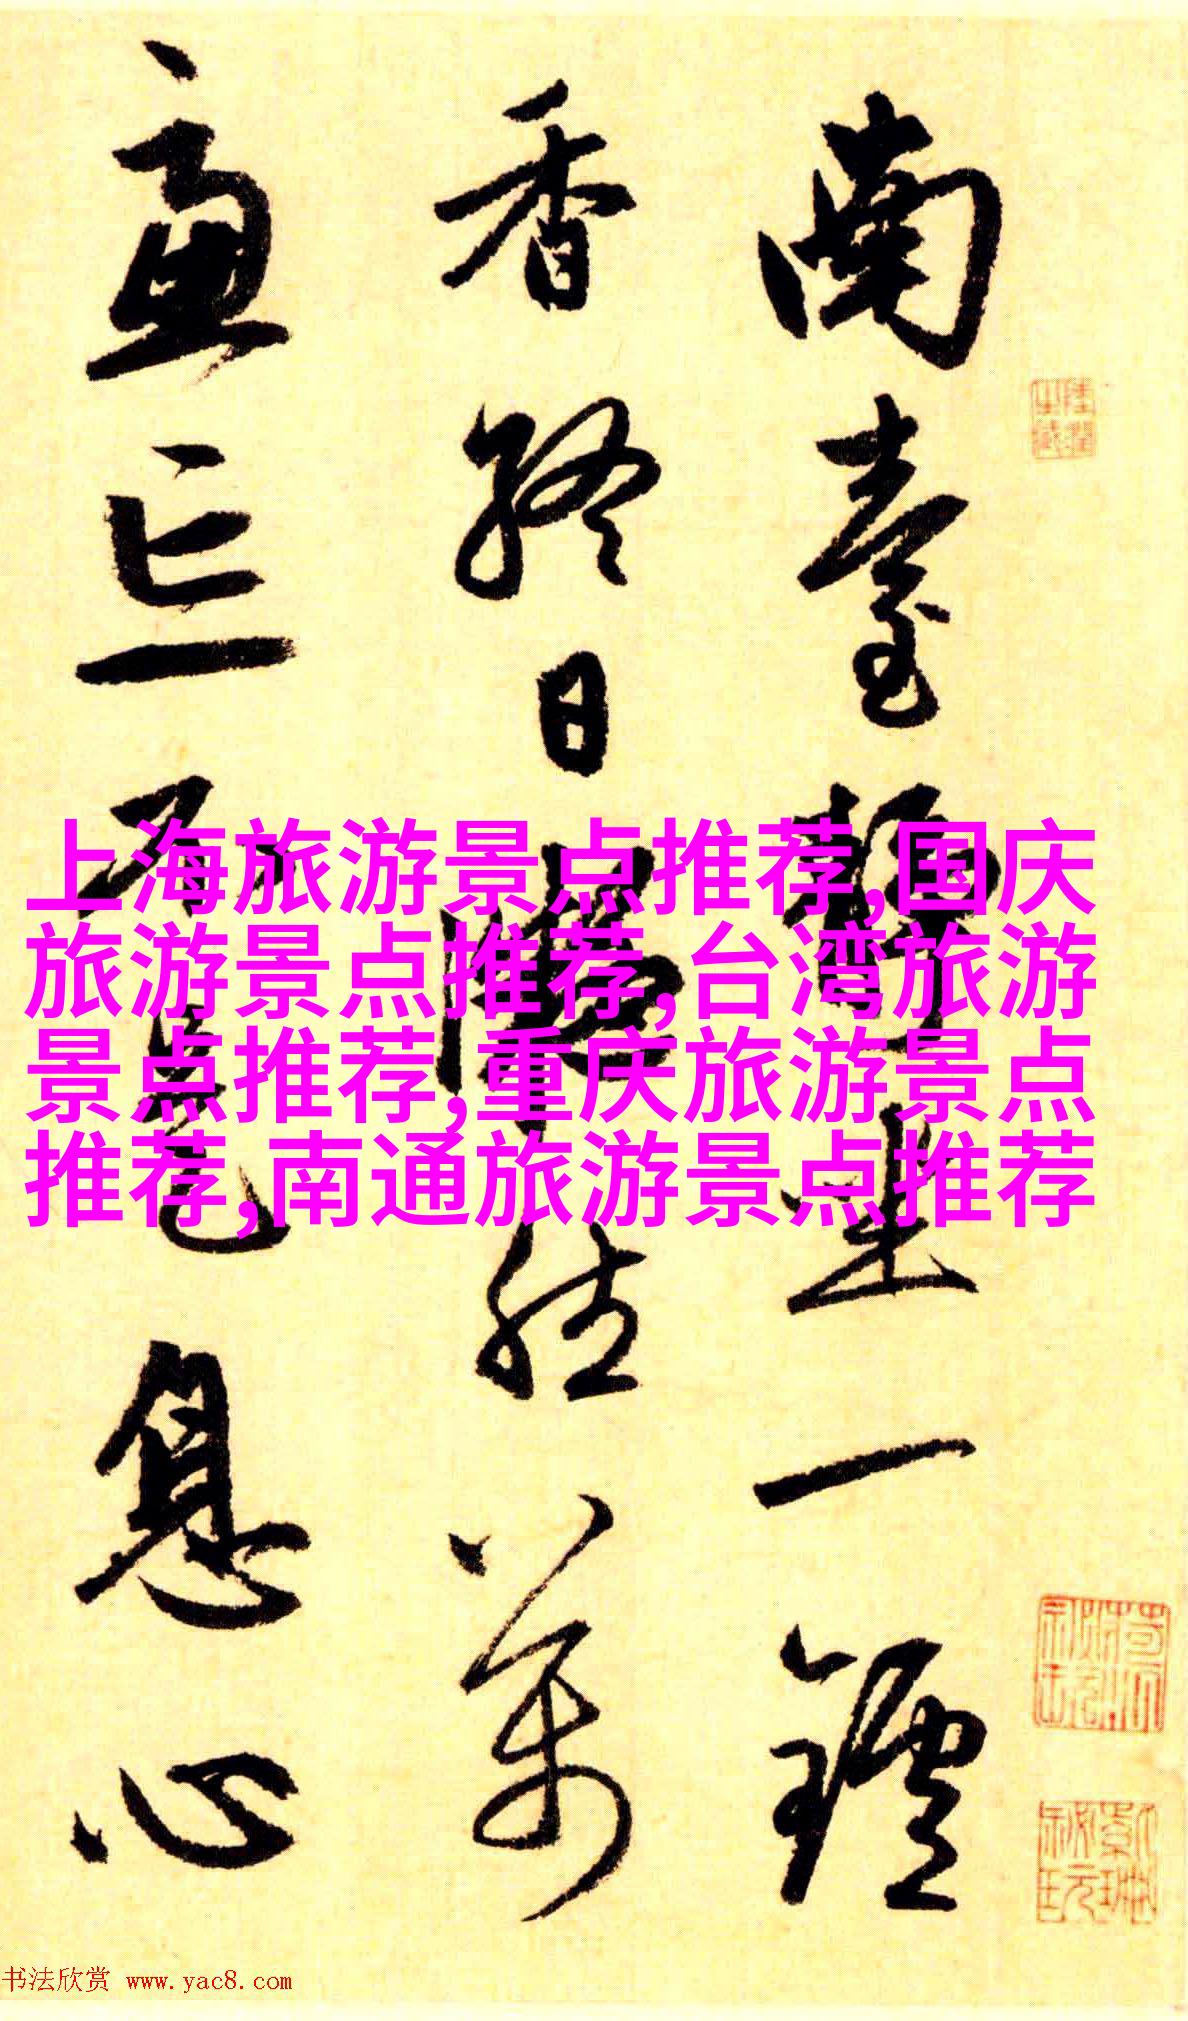 南臺靜坐一鑪
香終日凝然萬
慮忘不是息心
陸潤之藏
上海旅游景点推荐,国庆
旅游景点推荐,台湾旅游
景点推荐,重庆旅游景点
推荐,南通旅游景点推荐
书法欣赏 www.yac8.com